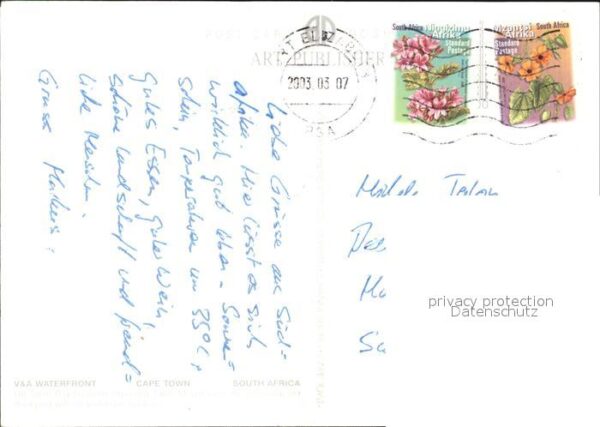 ART PUBLISHER
2003.03.07
RSA
South Africa
Standard Postage
South Africa
Afrika
Standard Postage
Liebe Grüsse aus Süd=
afrika. Hier lässt es sich
wirklich gut leben - Sonne=
schein, Temperaturen um 35°C,
gutes Essen, guter Wein,
schöne Landschaft und freund=
liche Menschen.
Gruss Markus
Michele
privacy protection
Datenschutz
V&A WATERFRONT CAPE TOWN SOUTH AFRICA